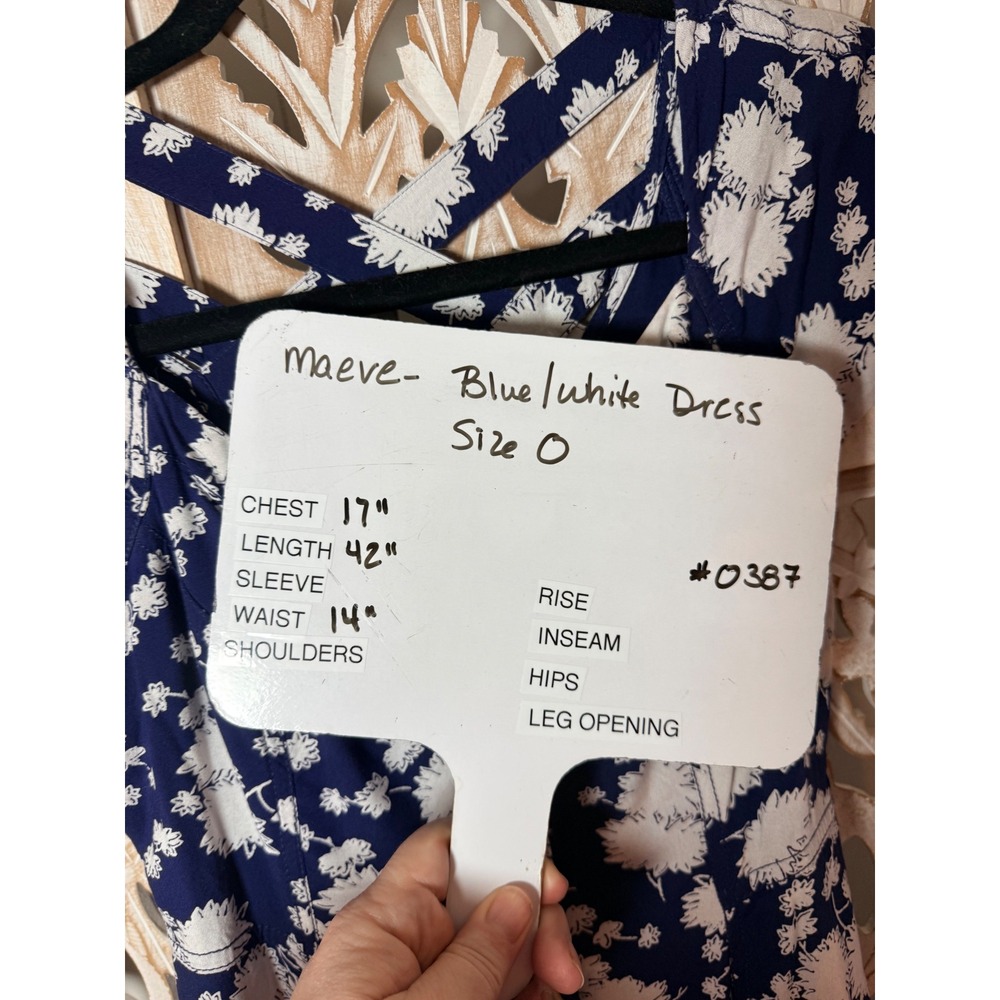 maeve- Blue/White Dress
Size 0
CHEST 17"
LENGTH 42"
SLEEVE
WAIST 14"
SHOULDERS
#0387
RISE
INSEAM
HIPS
LEG OPENING